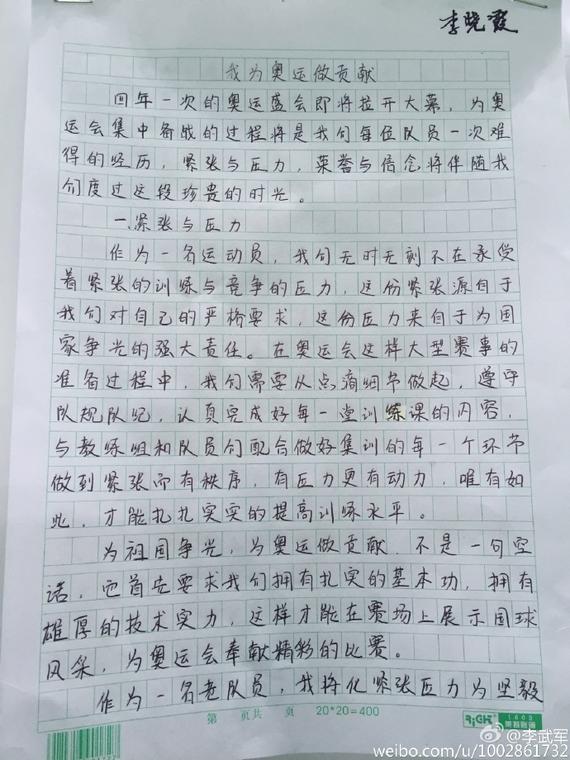 李晓霞
我为奥运做贡献
四年一次的奥运盛会即将拉开大幕，为奥
运会集中备战的过程将是我们每位队员一次难
得的经历，紧张与压力，荣誉与信念将伴随我
们度过这段珍贵的时光。
一.紧张与压力
作为一名运动员，我们无时无刻不在承受
着紧张的训练与竞争的压力，这份紧张源自于
我们对自己的严格要求，这份压力来自于为国
家争光的强大责任。在奥运会这样大型赛事的
准备过程中，我们需要从点滴细节做起，遵守
队规队纪，认真完成好每一堂训练课的内容，
与教练组和队员们配合做好集训的每一个环节
做到紧张而有秩序，有压力更有动力，唯有如
此，才能扎扎实实的提高训练水平。
为祖国争光，为奥运做贡献，不是一句空
话，它首先要求我们拥有扎实的基本功，拥有
雄厚的技术实力，这样才能在赛场上展示国球
风采，为奥运会奉献精彩的比赛。
作为一名老队员，我将化紧张压力为坚毅
第 页共 页 20*20=400
RiGHT 1603
@李武军
weibo.com/u/1002861732